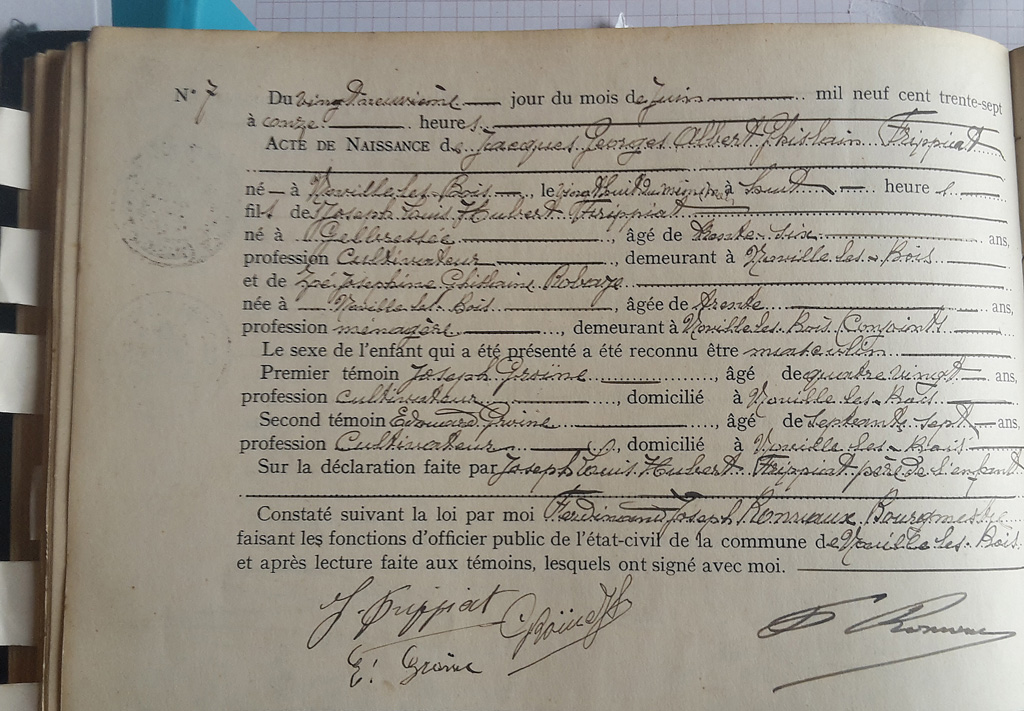 N° 7 Du vingt neuvième jour du mois de Juin mil neuf cent trente-sept
à onze heures
ACTE DE NAISSANCE de Jacques Georges Albert Ghislain Frippiat
né à Noville-les-Bois, le vingt huit du même mois à heures
fils de Joseph Louis Hubert Frippiat
né à Gelbressée, âgé de trente-six ans,
profession Cultivateur, demeurant à Noville-les-Bois
et de Zoé Joséphine Ghislaine
née à Noville-les-Bois, âgée de trente ans,
profession ménagère, demeurant à Noville-les-Bois. Conjoints
Le sexe de l'enfant qui a été présenté a été reconnu être masculin
Premier témoin Joseph Groïne, âgé de quatre vingt ans,
profession cultivateur, domicilié à Noville-les-Bois
Second témoin Edouard Groïne, âgé de septante sept ans,
profession Cultivateur, domicilié à Noville-les-Bois
Sur la déclaration faite par Joseph Louis Hubert Frippiat père de l'enfant
Constaté suivant la loi par moi Ferdinand Joseph Bourgmestre
faisant les fonctions d'officier public de l'état-civil de la commune de Noville-les-Bois
et après lecture faite aux témoins, lesquels ont signé avec moi.
J. Frippiat Groïne J
E. Groïne